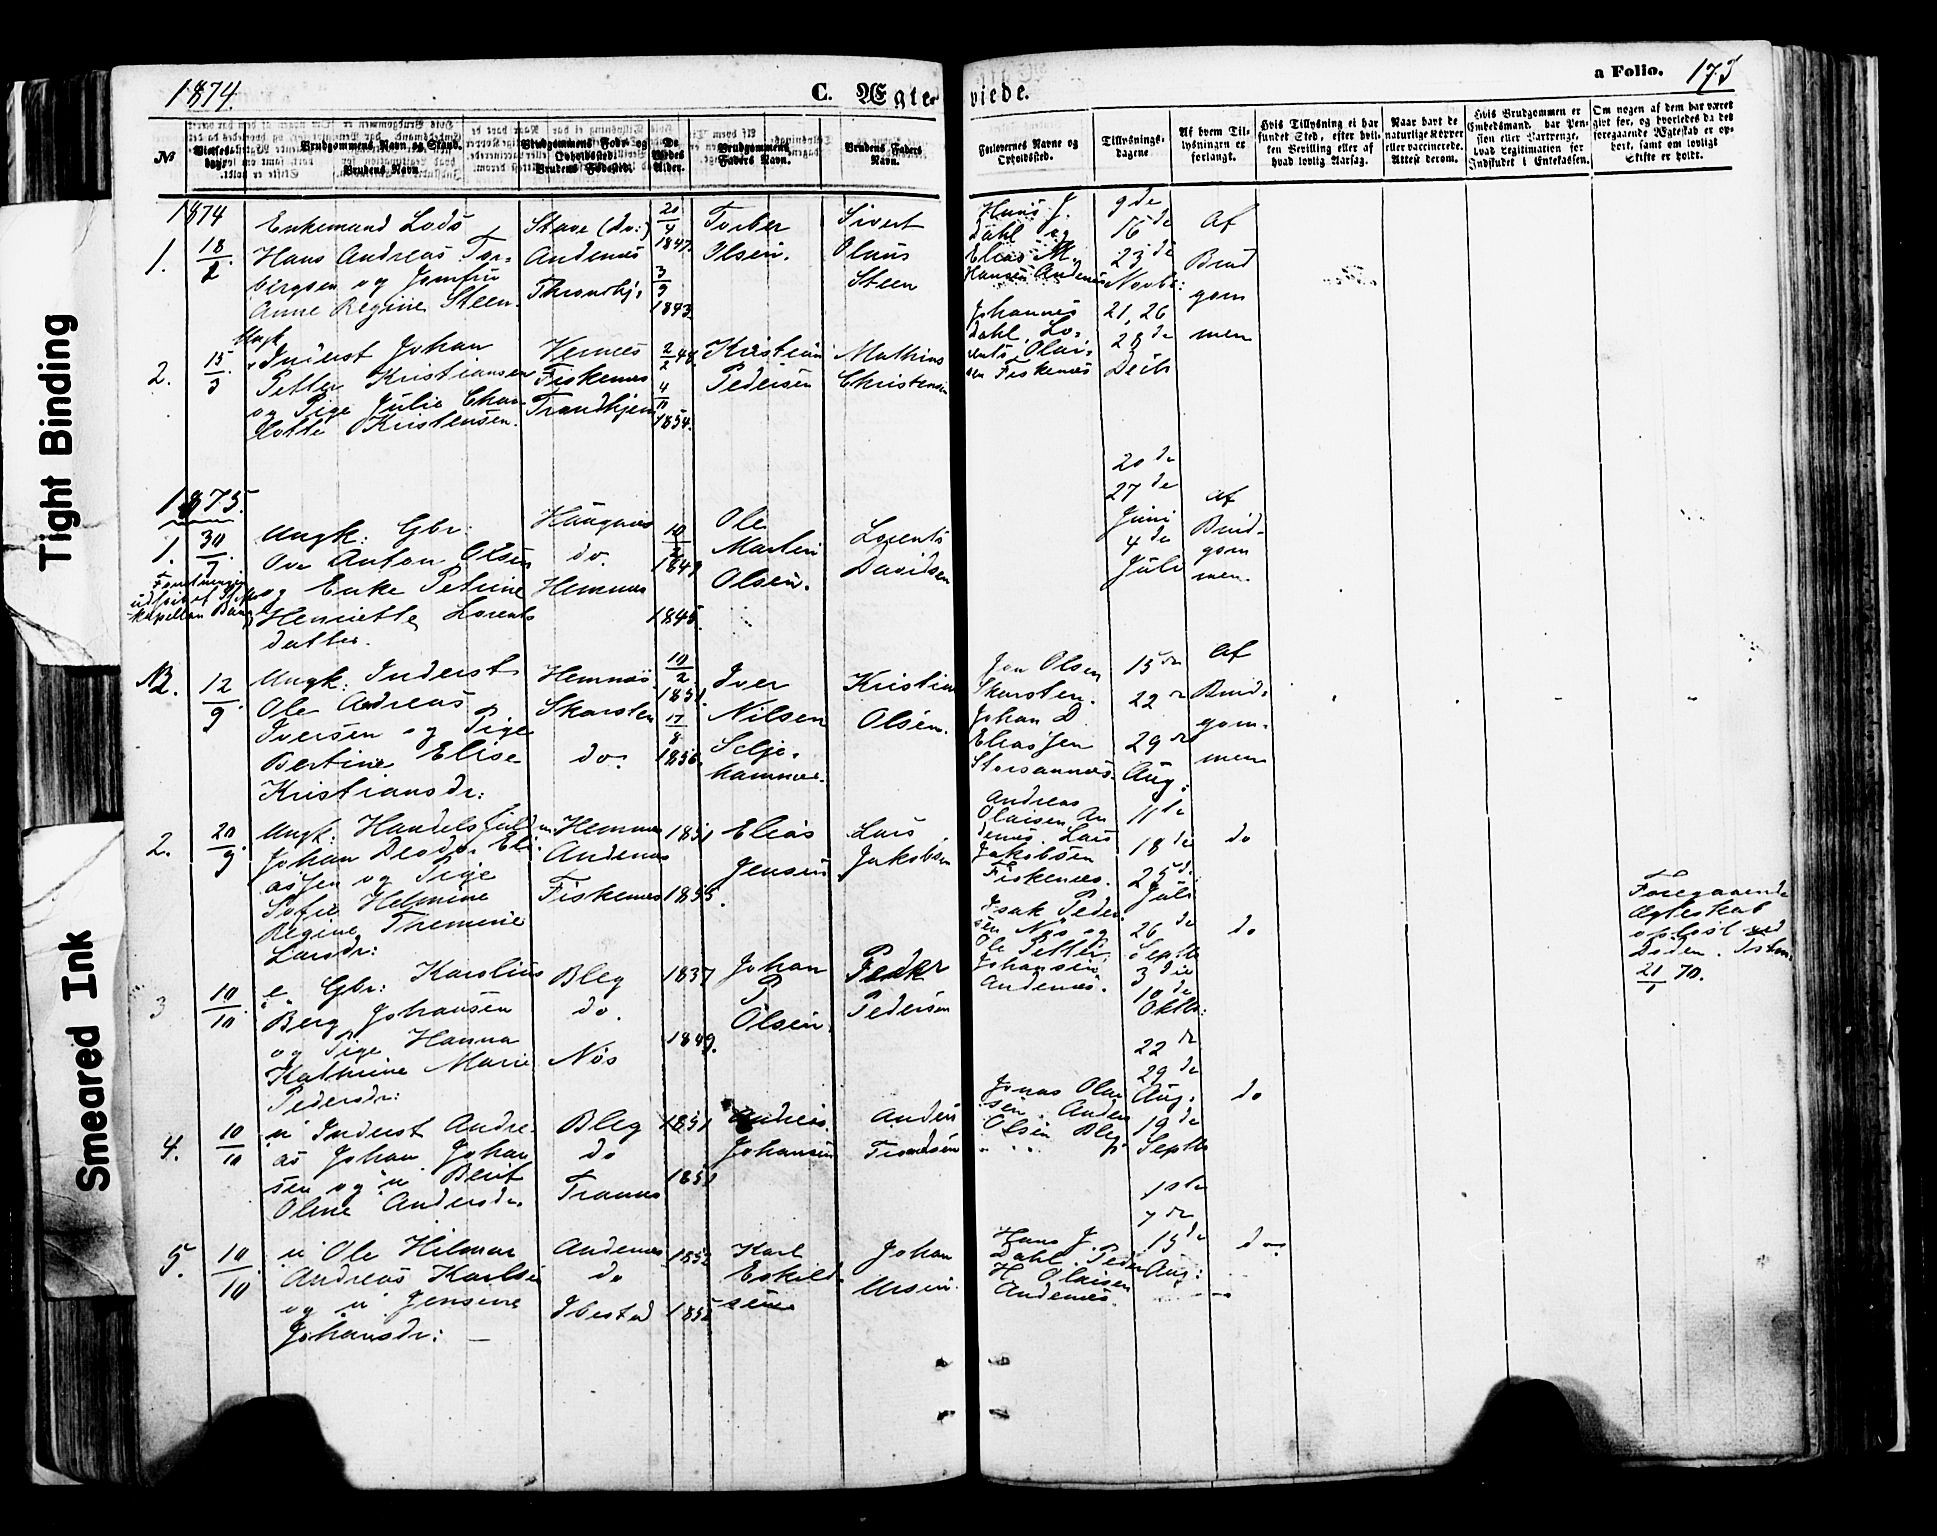 Tight Binding
Smeared Ink
1874
C. Ægteviede.
a Folio. 173
№
Vielsesdag.
Brudgommens Navn og Stand.
Brudens Navn
Brudgommens Føde- og Opholdssted.
Brudens Fødested.
De Viedes Alder.
Brudgommens Faders Navn.
Brudens Faders Navn.
Forlovernes Navne og Opholdssted.
Tillysnings-dagene
Af hvem Tillysningen er forlangt.
Hvis Tillysning ei har fundet Sted, efter hvilken Bevilling eller af hvad lovlig Aarsag.
Naar havt de naturlige Kopper eller vaccinerede. Attest derom.
Hvis Brudgommen er Embedsmand, har Pension eller Partrenge, hvad Legitimation for Indskudet i Enkekassen.
Om nogen af dem har været gift før, og hvorledes da det foregaaende Ægteskab er ophørt, samt om lovligt Skifte er holdt.
1874
1.
18/2.
Enkemand Lods
Hans Andreas Tor-
bergsen og Jomfru
Anne Regine Steen
Stave (do:)
Andenæs
Throndhj:
20/4
1847.
3/9
1843.
Torber
Olsen.
Sivert
Olaus
Steen
Hans J.
Dahl og
Elias M.
Hansen Andenæs
9de
16de
23de
Novbr:
Af
Brud
gom
men
2.
15/3.
Ungk
Inderst Johan
Petter Kristiansen
og Pige Julie Char
lotte Kristensen.
Vernes
Fiskenæs
Trondhjem
2/2 48.
4/11
1854.
Kristian
Pedersen
Mathias
Christensen
Johannes
Dahl, Lo-
rents Olai-
sen Fiskenæs
21, 26
28de
Decbr
1875.
1.
30/7.
Forretningen
udført af
kapellan Bang
Ungk: Gbr:
Ove Anton Olsen
og Enke Petrine
Henriette Lorents
datter.
Haugnæs
do.
Hemnæs
10/2
1849
1845.
Ole
Martin
Olsen.
Lorents
Davidsen
20de
27de
Juni
4de
Juli
Af
Brud-
gom
men.
2.
12/9.
Ungk: Inderst
Ole Andreas
Iversen og Pige
Bertine Elise
Kristiansdr:
Hemnæs
Skarsten
do.
10/2
1851.
17/8
1856.
Iver
Nilsen
Seljehamner.
Kristian
Olsen.
Jon Olsen
Skarsten.
Johan D.
Eliassen
15de
22de
29de
Aug.
Af
Brud-
gom-
men
2.
20/9.
Ungk: Handelsfuldm.
Johan Deodor Eli-
assen og Pige
Sofie Helmine
Regine Themine
Larsdr:
Hemnæs
Andenæs
Fiskenæs
1851
1855.
Elias
Jensen
Lars
Jakobsen
Andreas
Olaisen An
denæs Lars
Jakobsen
Fiskenæs.
11te
18de
25de
Juli
do
3
10/10
e. Gbr: Karolius
Berg Johansen
og Pige Hanna
Kathrine Marie
Pedersdr:
Bleg
do.
Nøs
1837
1849.
Johan
P.
Olsen.
Peder
Pedersen
Isak Peder
sen Nøs og
Ole Petter
Johansen
Andenæs.
26de
Septbr
3die
10de
Oktbr:
do
Foregaaende
Ægteskab
opløst ved
Døden.
21/1 70.
4.
10/10
u Inderst Andre
as Johan Johan
sen og u Berit
Oline Andersdr.
Bleg
do
Tranøs
1851
1851
Andreas
Johansen
Anders
Trondsen
Jonas Olau
sen. Anders
Olsen Bleg.
22de
29de
Aug.
19de
Septbr
do
5.
10/10
u Ole Hilmar
Andreas Karlsen
og u Jensine
Johansdr:
Andenæs
do
Ibestad
1852
1852
Karl
Eskild
sen
Johan
Ursin.
Hans J.
Dahl. Peder
H. Olaisen
Andenæs.
1ste
7de
15de
Aug:
do